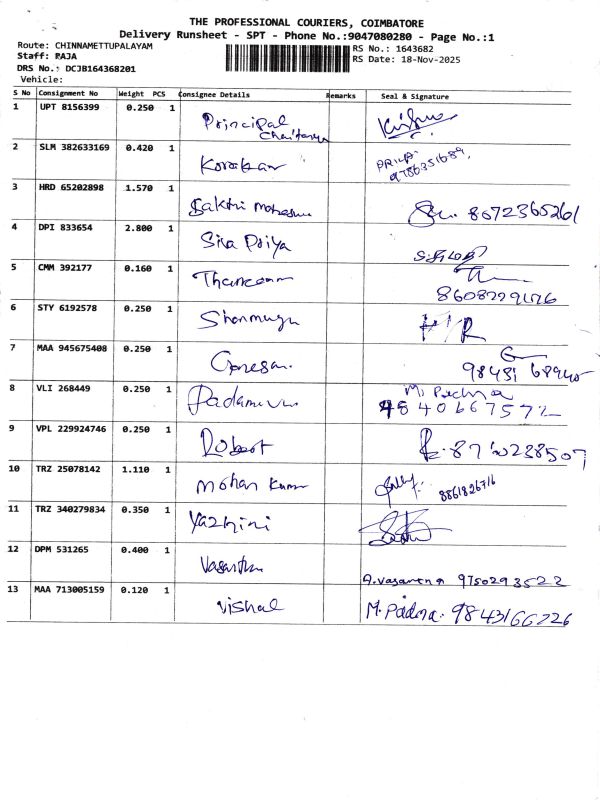 THE PROFESSIONAL COURIERS, COIMBATORE
Delivery Runsheet - SPT - Phone No.:9047080280 - Page No.:1
Route: CHINNAMETTUPALAYAM
Staff: RAJA
DRS No.: DCJB164368201
Vehicle:
RS No.: 1643682
RS Date: 18-Nov-2025
S No Consignment No Weight PCS Consignee Details Remarks Seal & Signature
1 UPT 8156399 0.250 1 Principal Chaitanya
2 SLM 382633169 0.420 1 PRIYA
3 HRD 65202898 1.570 1 Sakthi 8072365261
4 DPI 833654 2.800 1 Siva Priya
5 CMM 392177 0.160 1
6 STY 6192578 0.250 1 Shanmuga
7 MAA 945675408 0.250 1 Ganesan
8 VLI 268449 0.250 1 M. Padma
9840667572
9 VPL 229924746 0.250 1 Robert
10 TRZ 25078142 1.110 1 Mohan Kumar 8861826716
11 TRZ 340279834 0.350 1 Yazhini
12 DPM 531265 0.400 1 Vasantha A. Vasantha 9750293522
13 MAA 713005159 0.120 1 Vishal M. Padma. 9843166226